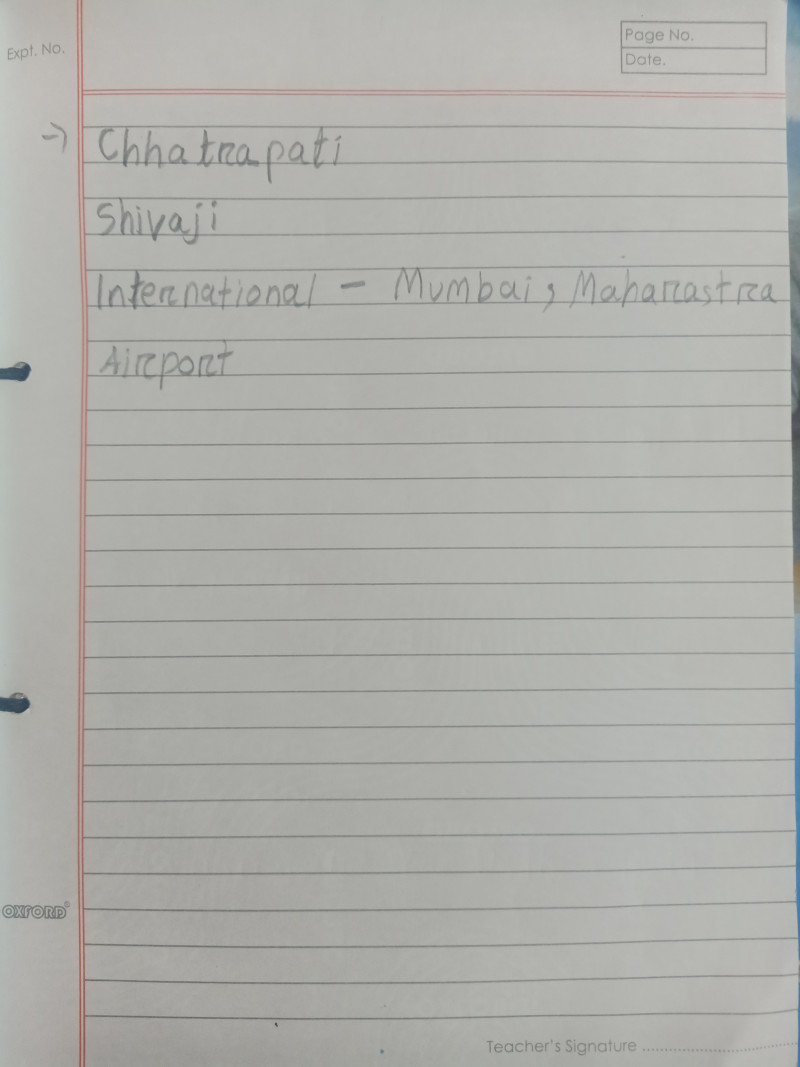 Expt. No.
Page No.
Date.
→ Chhatrapati
Shivaji
International - Mumbai, Maharastra
Airport
OXFORD
Teacher's Signature ........................